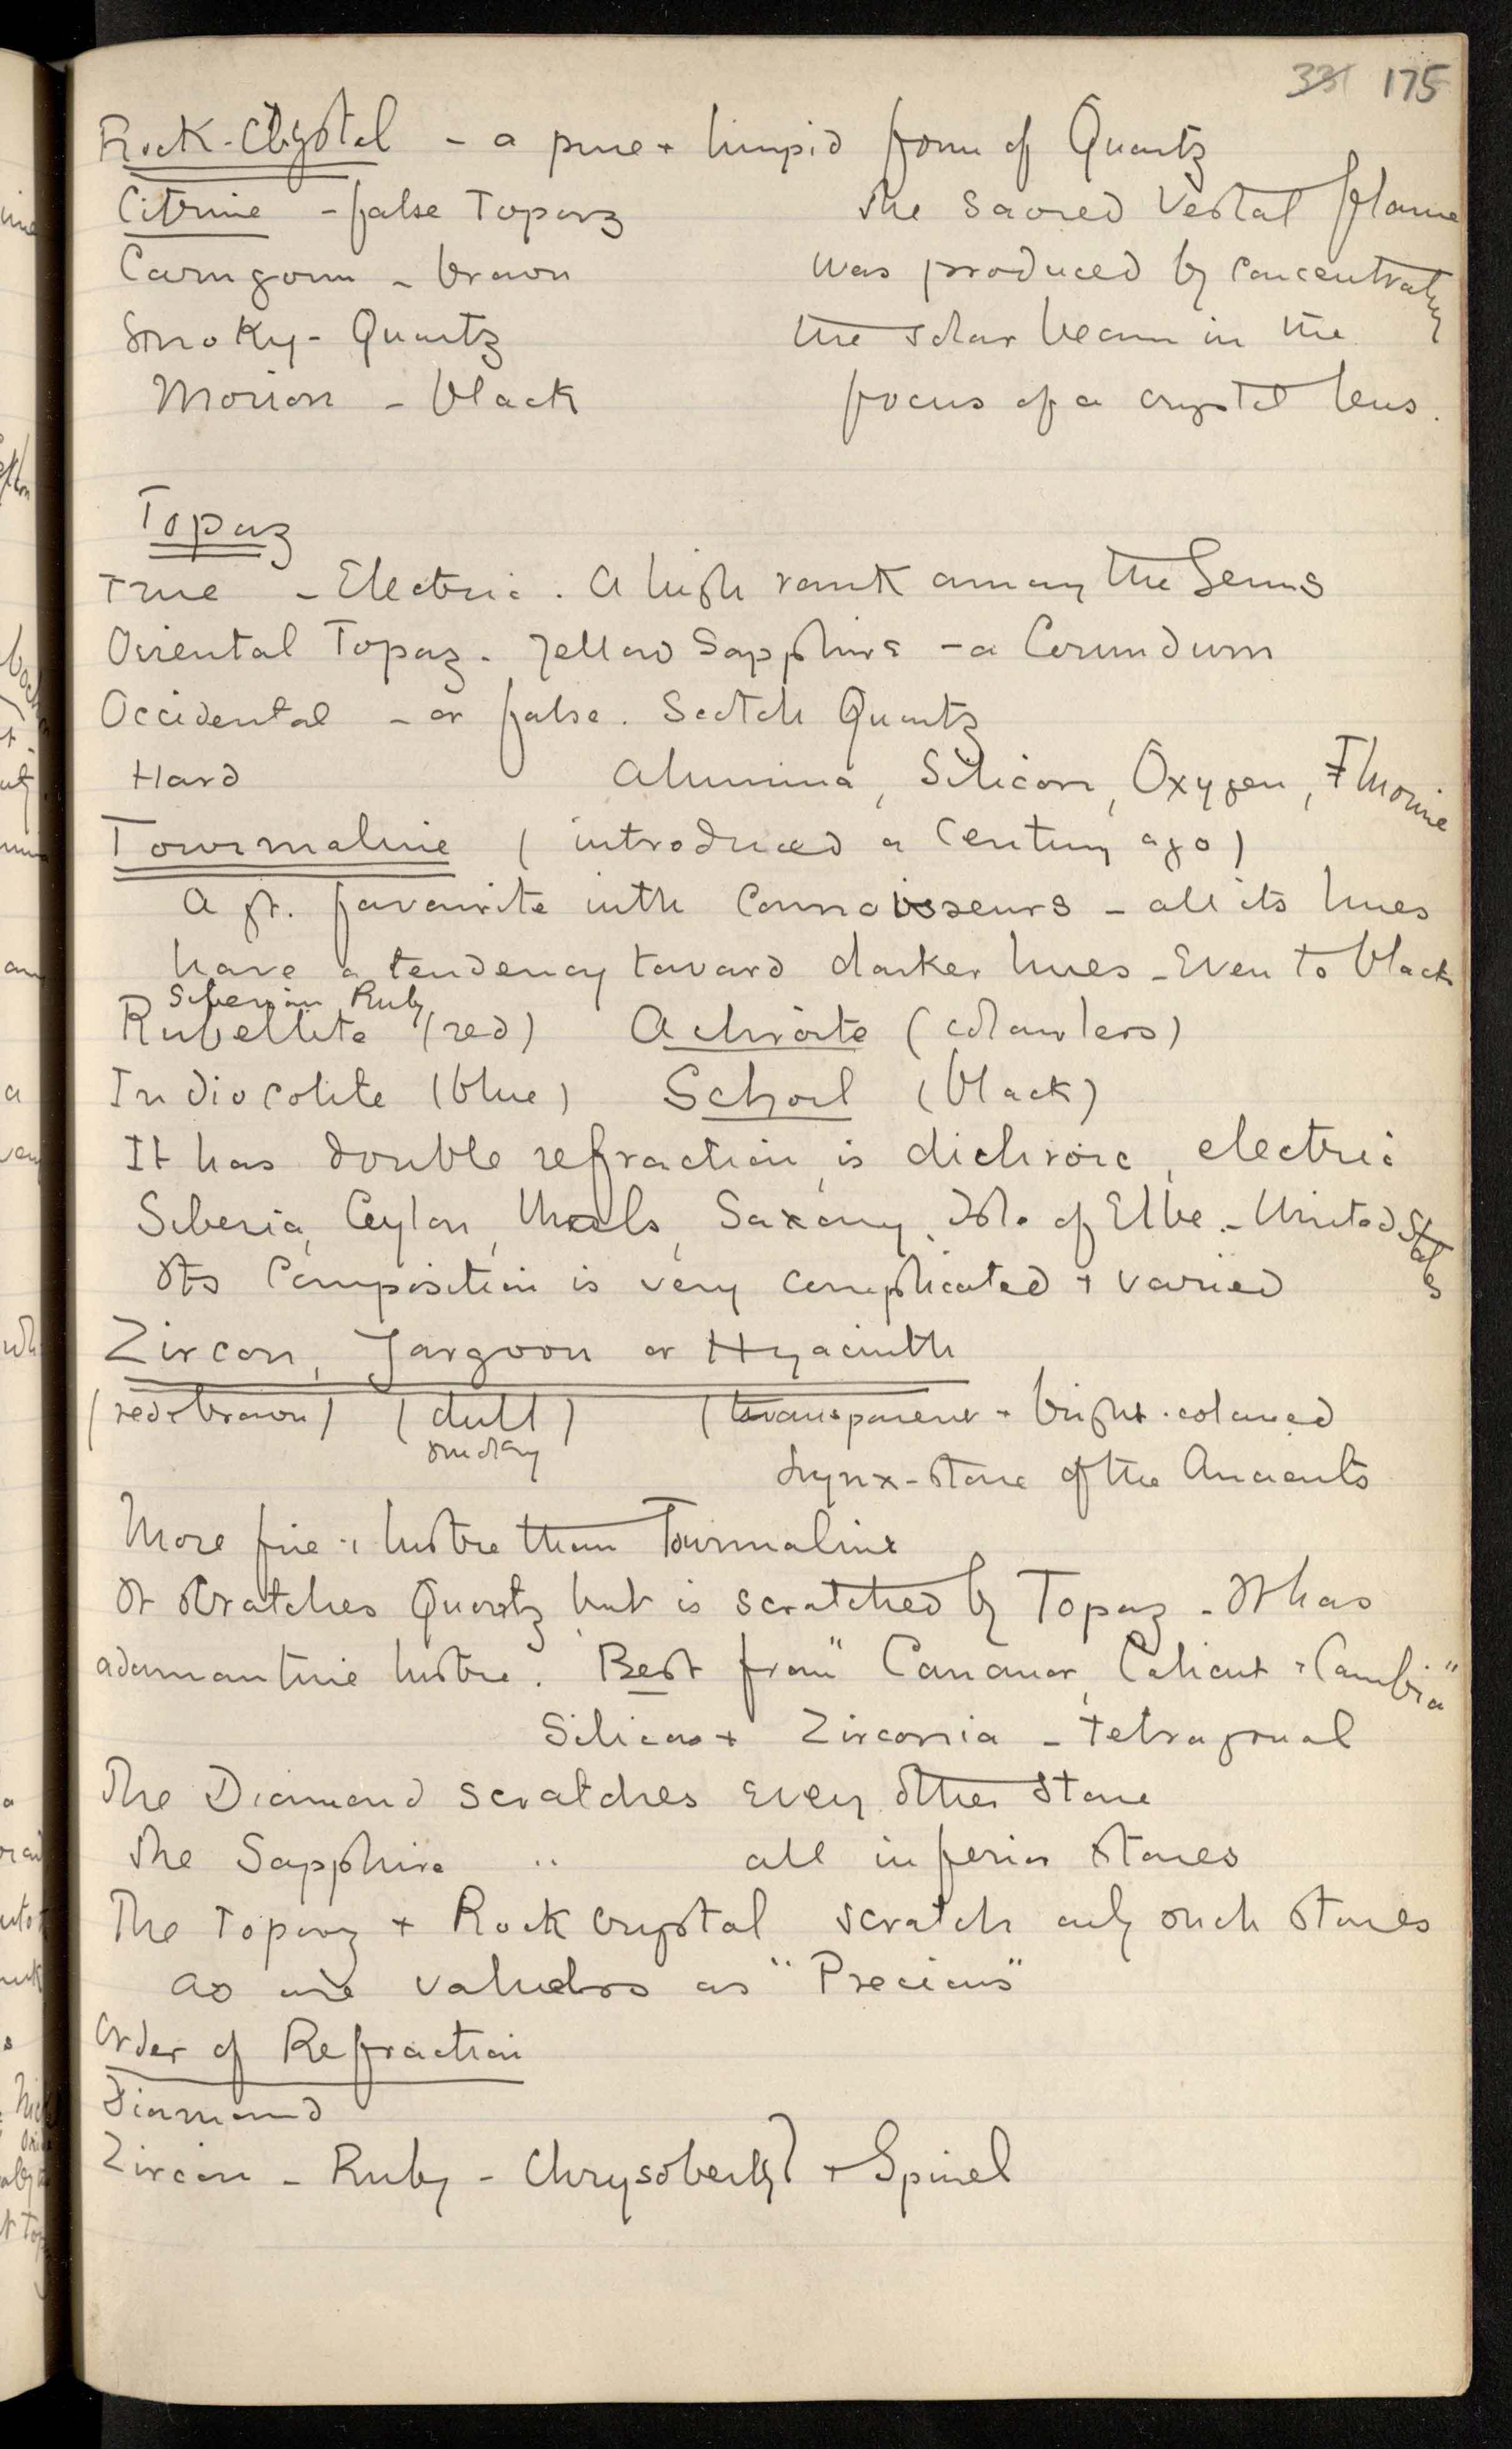 331 175
Rock-Crystal - a pure + limpid form of Quartz
Citrine - false Topaz
The Sacred Vestal flame
Cairngorm - brown
was produced by concentrating
Smoky - Quartz
the solar beam in the
Morion - black
focus of a crystal lens.
Topaz
True - Electric. A high rank among the Gems
Oriental Topaz. Yellow Sapphire - a Corundum
Occidental - or false. Scotch Quartz
Hard
Alumina, Silicon, Oxygen, Fluorine
Tourmaline (introduced a century ago)
A gt. favourite with Connoisseurs - all its hues
have a tendency toward darker hues - Even to black
Siberian Ruby
Rubellite (red) Achroite (colourless)
Indicolite (blue) Schorl (black)
It has double refraction, is dichroic, electric
Siberia, Ceylon, Urals, Saxony, Isle of Elbe - United States
Its Composition is very complicated + varied
Zircon, Jargoon or Hyacinth
(red + brown) (dull) (transparent + bright-coloured
smoky
Lynx-stone of the Ancients
More fire + lustre than Tourmaline
It scratches Quartz but is scratched by Topaz - It has
adamantine lustre. Best from "Cananor, Calicut + Cambia"
Silica + Zirconia - tetragonal
The Diamond scratches every other stone
The Sapphire " all inferior stones
The Topaz + Rock crystal scratch only such stones
as are valueless as "Precious"
Order of Refraction
Diamond
Zircon - Ruby - Chrysoberyl + Spinel